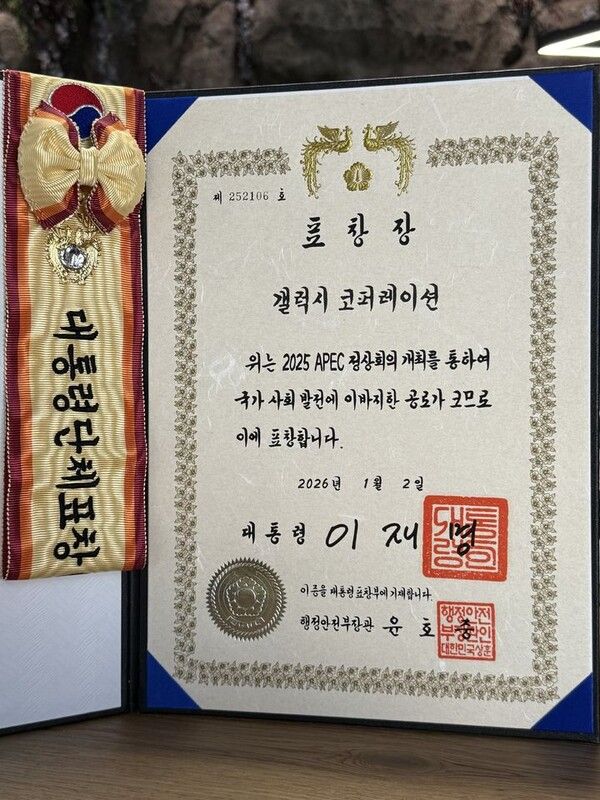 제 252106 호
표 창 장
갤럭시 코퍼레이션
위는 2025 APEC 정상회의 개최를 통하여
국가 사회 발전에 이바지한 공로가 크므로
이에 표창합니다.
2026년 1월 2일
대통령 이 재 명
이 증을 대통령표창부에 기재합니다.
행정안전부장관 윤 호 중
행정안전
부장관인
대한민국상훈
대통령단체표창